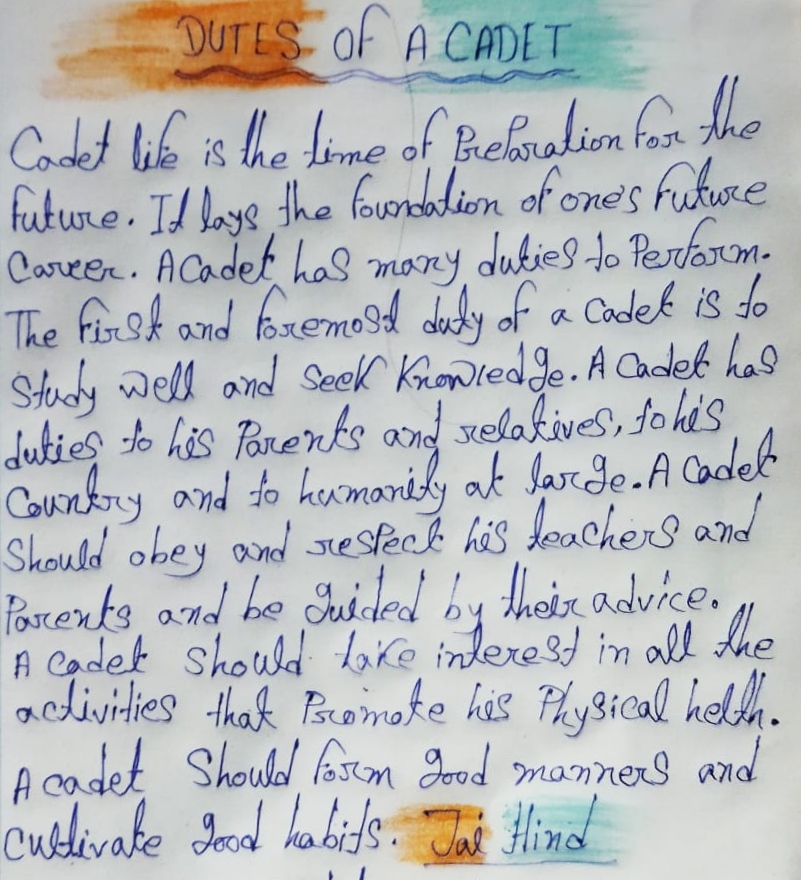 DUTES OF A CADET
Cadet life is the time of Preparation for the
future. It lays the foundation of one's future
Career. A Cadet has many duties to Perform.
The first and foremost duty of a Cadet is to
Study well and Seek Knowledge. A Cadet has
duties to his Parents and relatives, to his
Country and to humanity at large. A Cadet
Should obey and respect his teachers and
Parents and be guided by their advice.
A Cadet Should take interest in all the
activities that Promote his Physical helth.
A cadet Should form good manners and
Cultivate good habits. Jai Hind